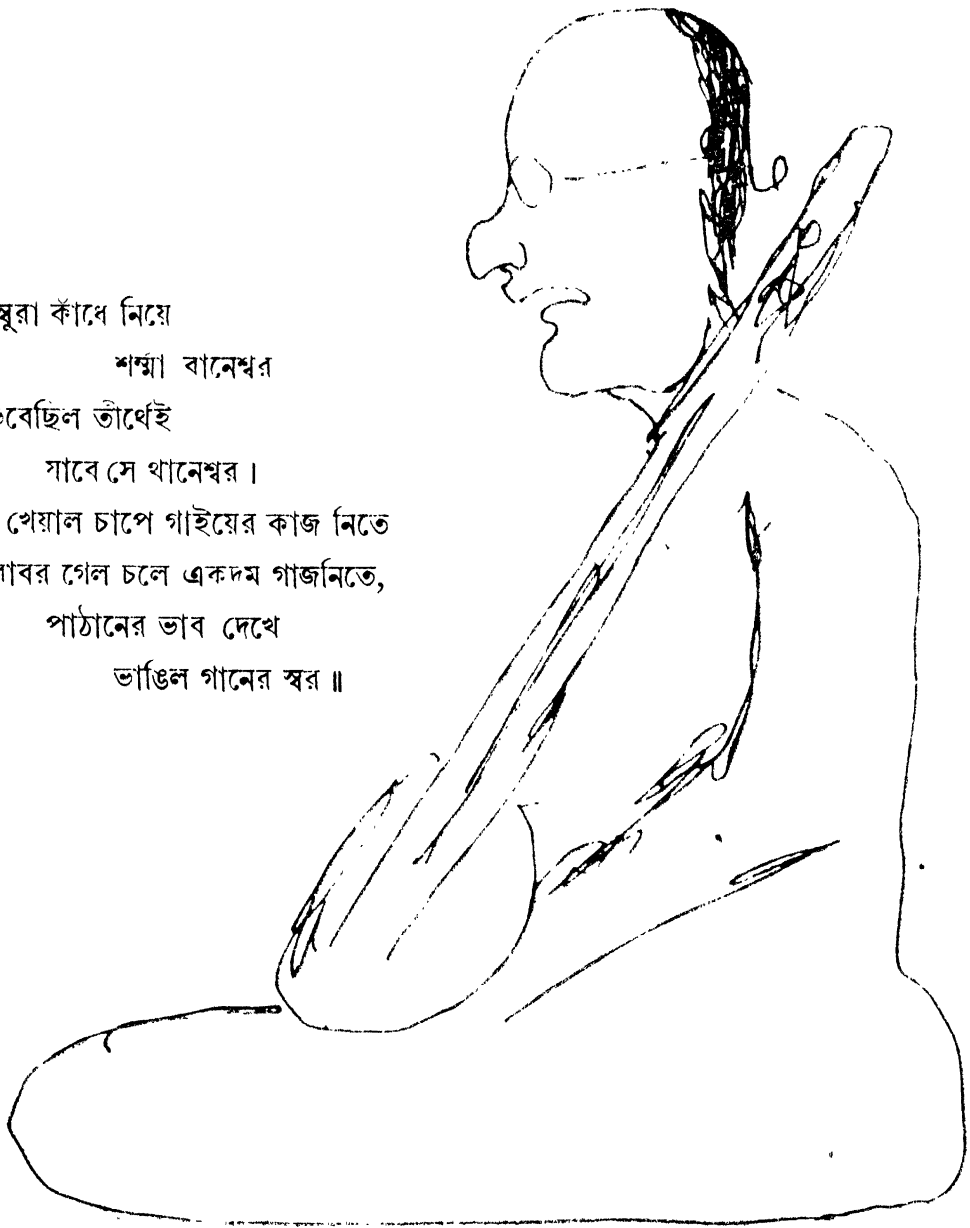 ম্বুরা কাঁধে নিয়ে
শর্ম্মা বানেশ্বর
বেছিল তীর্থেই
যাবে সে থানেশ্বর।
খেয়াল চাপে গাইয়ের কাজ নিতে
রাবর গেল চলে একদম গাজনিতে,
পাঠানের ভাব দেখে
ভাঙিল গানের স্বর॥